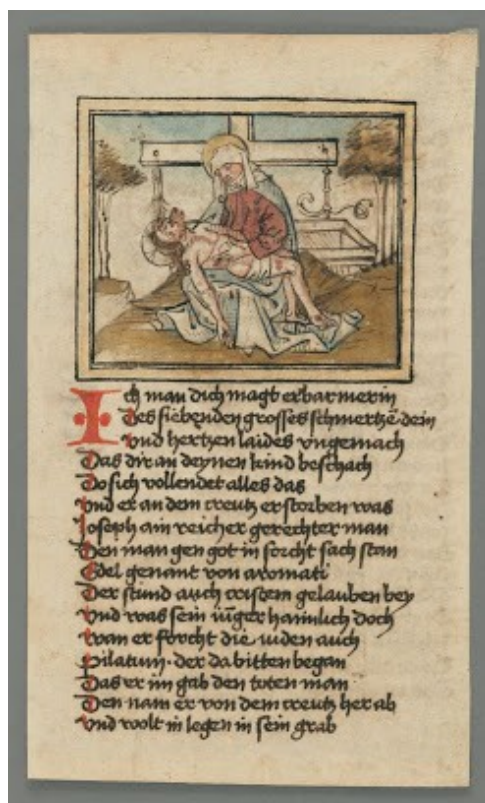 Ich man dich magt erbarmerin
Des siebenden grosses schmertzē dein
Vnd hertzen laides vngemach
Das dir an deynen kind beschach
Do sich vollendet alles das
Vnd er an dem creutz erstorben was
Joseph ain reicher gerechter man
Den man gen got in forcht sach stan
Edel genant von aromati
Der stund auch cristem gelauben bey
Vnd was sein iūger haimlich doch
wan er forcht die iuden auch
Pilatum · der da bitten began
Das er im gab den toten man
Den nam er von dem creutz her ab
Vnd wolt in legen in sein grab